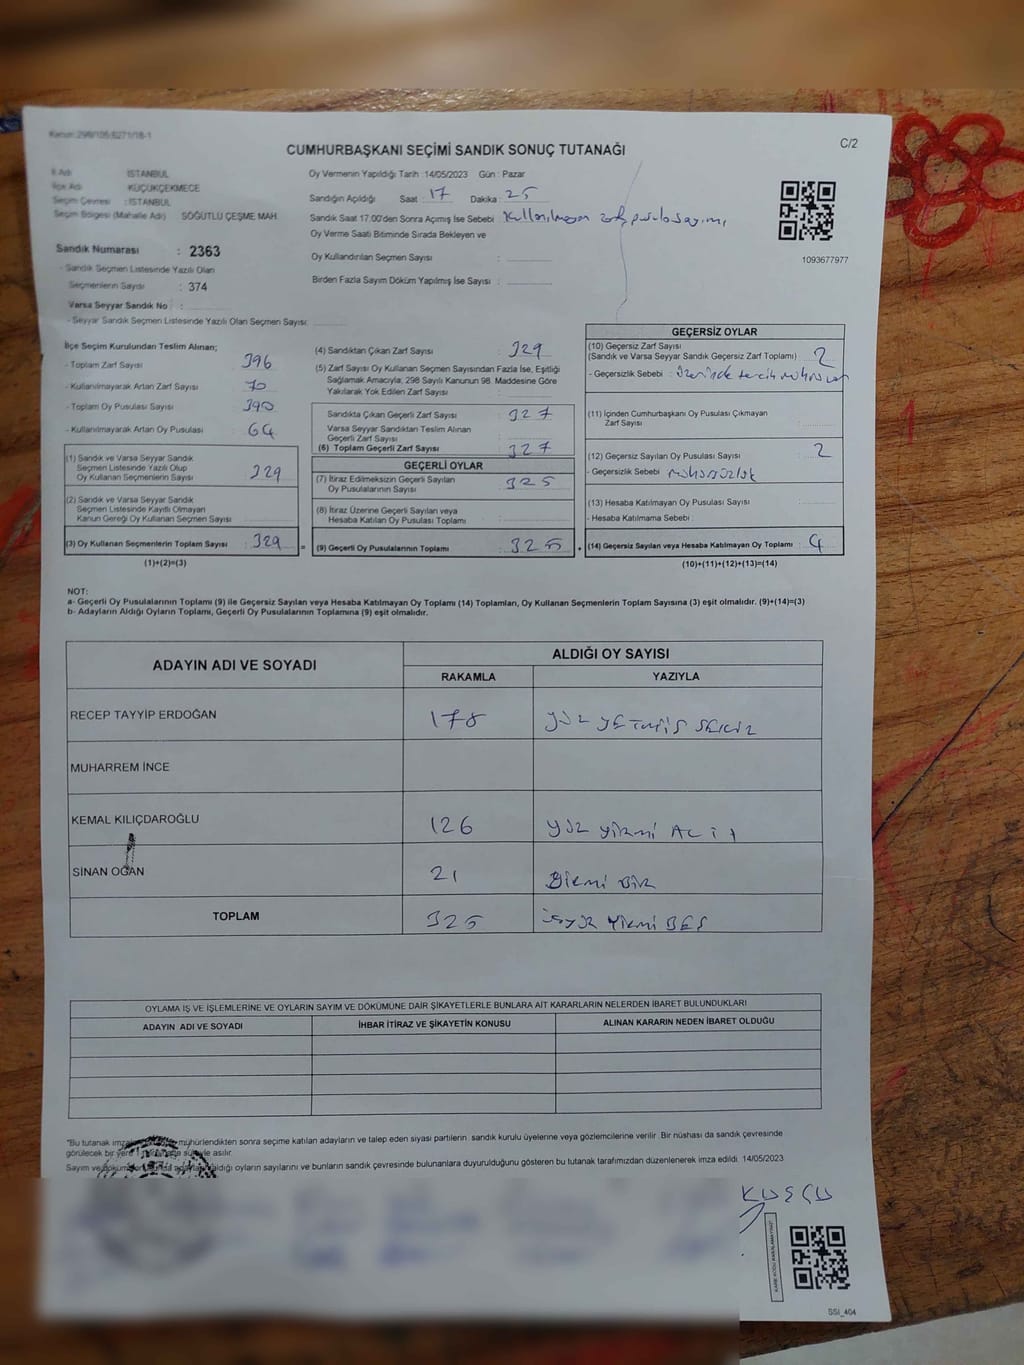 Kanun:298/105;6271/18-1
C/2
CUMHURBAŞKANI SEÇİMİ SANDIK SONUÇ TUTANAĞI
İl Adı : İSTANBUL
İlçe Adı : KÜÇÜKÇEKMECE
Seçim Çevresi : İSTANBUL
Seçim Bölgesi (Mahalle Adı) SÖĞÜTLÜ ÇEŞME MAH.
Sandık Numarası : 2363
- Sandık Seçmen Listesinde Yazılı Olan
Seçmenlerin Sayısı : 374
Varsa Seyyar Sandık No :
- Seyyar Sandık Seçmen Listesinde Yazılı Olan Seçmen Sayısı:
Oy Vermenin Yapıldığı Tarih :14/05/2023 Gün : Pazar
Sandığın Açıldığı Saat : 17 Dakika : 25
Sandık Saat 17:00'den Sonra Açımış İse Sebebi : Kullanılmayan zarf, pusula sayımı
Oy Verme Saati Bitiminde Sırada Bekleyen ve
Oy Kullandırılan Seçmen Sayısı :
Birden Fazla Sayım Döküm Yapılmış İse Sayısı :
1093677977
İlçe Seçim Kurulundan Teslim Alınan;
- Toplam Zarf Sayısı : 396
- Kullanılmayarak Artan Zarf Sayısı : 70
- Toplam Oy Pusulası Sayısı : 390
- Kullanılmayarak Artan Oy Pusulası : 64
(1) Sandık ve Varsa Seyyar Sandık
Seçmen Listesinde Yazılı Olup
Oy Kullanan Seçmen Sayısı : 329
(2) Sandık ve Varsa Seyyar Sandık
Seçmen Listesinde Kayıtlı Olmayan
Kanun Gereği Oy Kullanan Seçmen Sayısı :
(3) Oy Kullanan Seçmenlerin Toplam Sayısı : 329
(1)+(2)=(3)
(4) Sandıktan Çıkan Zarf Sayısı : 329
(5) Zarf Sayısı Oy Kullanan Seçmen Sayısından Fazla İse, Eşitliği
Sağlamak Amacıyla, 298 Sayılı Kanunun 98. Maddesine Göre
Yakılarak Yok Edilen Zarf Sayısı :
Sandıkta Çıkan Geçerli Zarf Sayısı : 327
Varsa Seyyar Sandıktan Teslim Alınan
Geçerli Zarf Sayısı :
(6) Toplam Geçerli Zarf Sayısı : 327
GEÇERLİ OYLAR
(7) İtiraz Edilmeksizin Geçerli Sayılan
Oy Pusulalarının Sayısı : 325
(8) İtiraz Üzerine Geçerli Sayılan veya
Hesaba Katılan Oy Pusulası Toplamı :
= (9) Geçerli Oy Pusulalarının Toplamı : 325 +
GEÇERSİZ OYLAR
(10) Geçersiz Zarf Sayısı
(Sandık ve Varsa Seyyar Sandık Geçersiz Zarf Toplamı) : 2
- Geçersizlik Sebebi : üzerinde tercih mührü var
(11) İçinden Cumhurbaşkanı Oy Pusulası Çıkmayan
Zarf Sayısı :
(12) Geçersiz Sayılan Oy Pusulası Sayısı : 2
- Geçersizlik Sebebi : mühürsüzlük
(13) Hesaba Katılmayan Oy Pusulası Sayısı :
- Hesaba Katılmama Sebebi :
(14) Geçersiz Sayılan veya Hesaba Katılmayan Oy Toplamı : 4
(10)+(11)+(12)+(13)=(14)
NOT:
a- Geçerli Oy Pusulalarının Toplamı (9) ile Geçersiz Sayılan veya Hesaba Katılmayan Oy Toplamı (14) Toplamları, Oy Kullanan Seçmenlerin Toplam Sayısına (3) eşit olmalıdır. (9)+(14)=(3)
b- Adayların Aldığı Oyların Toplamı, Geçerli Oy Pusulalarının Toplamına (9) eşit olmalıdır.
ADAYIN ADI VE SOYADI ALDIĞI OY SAYISI
RAKAMLA YAZIYLA
RECEP TAYYİP ERDOĞAN 178 YÜZ YETMİŞ SEKİZ
MUHARREM İNCE
KEMAL KILIÇDAROĞLU 126 YÜZ YİRMİ ALTI
SİNAN OĞAN 21 YİRMİ BİR
TOPLAM 325 ÜÇYÜZ YİRMİ BEŞ
OYLAMA İŞ VE İŞLEMLERİNE VE OYLARIN SAYIM VE DÖKÜMÜNE DAİR ŞİKAYETLERLE BUNLARA AİT KARARLARIN NELERDEN İBARET BULUNDUKLARI
ADAYIN ADI VE SOYADI İHBAR İTİRAZ VE ŞİKAYETİN KONUSU ALINAN KARARIN NEDEN İBARET OLDUĞU
"Bu tutanak mühürlendikten sonra seçime katılan adayların ve talep eden siyasi partilerin sandık kurulu üyelerine veya gözlemcilerine verilir. Bir nüshası da sandık çevresinde
görülecek bir yere asılır.
Sayım ve oyların sayılarını ve bunların sandık çevresinde bulunanlara duyurulduğunu gösteren bu tutanak tarafımızdan düzenlenerek imza edildi. 14/05/2023
KUŞÇU
SSI_404